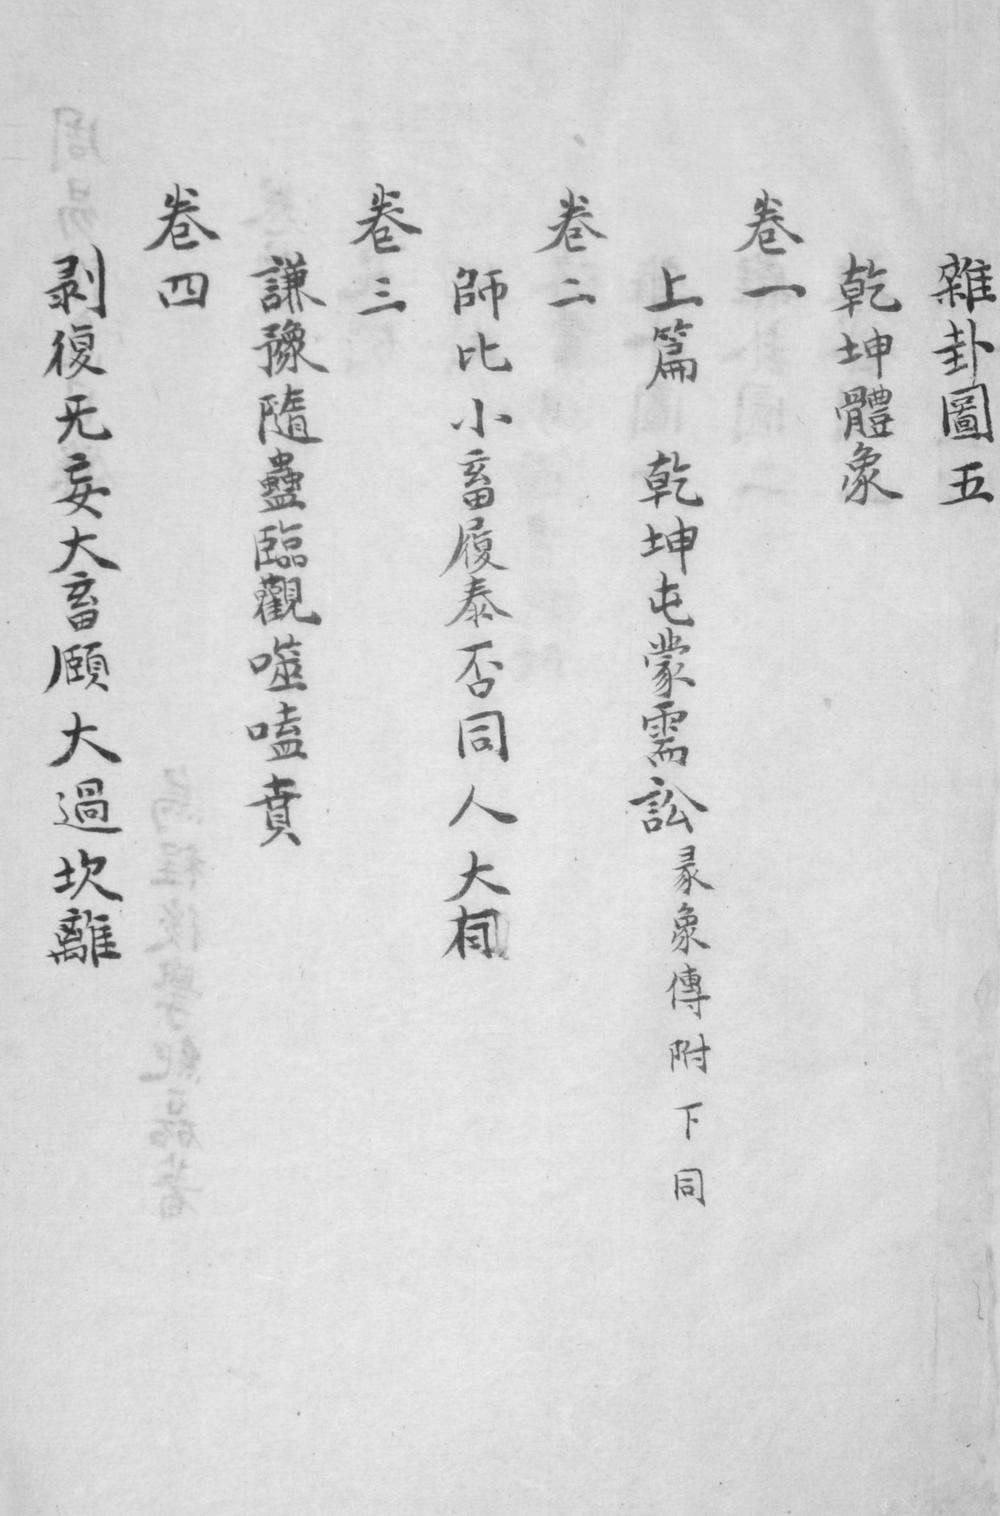 雜卦圖五
乾坤體象
卷一
上篇　乾坤屯蒙需訟彖象傳附下同
卷二
師比小畜履泰否同人大有
卷三
謙豫隨蠱臨觀噬嗑賁
卷四
剥復无妄大畜頤大過坎離